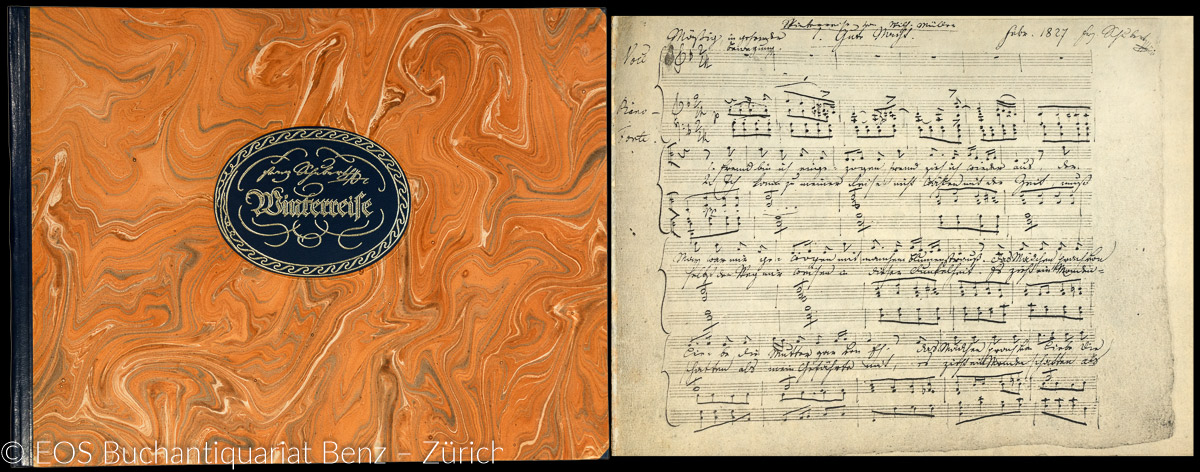 Franz Schubert
Winterreise
Winterreise von Wilh. Müller
Mäßig, in gehender Bewegung. 1. Gute Nacht. Febr. 1827 Frz Schubert
Piano-
Forte
Fremd bin ich einge- zogen fremd zieh ich wieder aus der
Ich kann zu meiner Reisen nicht wählen mit der Zeit muß
May war mir ge- wogen mit manchem Blumenstrauß. Das Mädchen sprach von
selbst den Weg mir weisen in dieser Dunkelheit Es zieht ein Monden-
Lie- be die Mutter gar von Eh- das Mädchen sprach von Liebe die
schatten als mein Gefährte mit, es zieht ein Mondenschatten als
© EOS Buchantiquariat Benz – Zürich